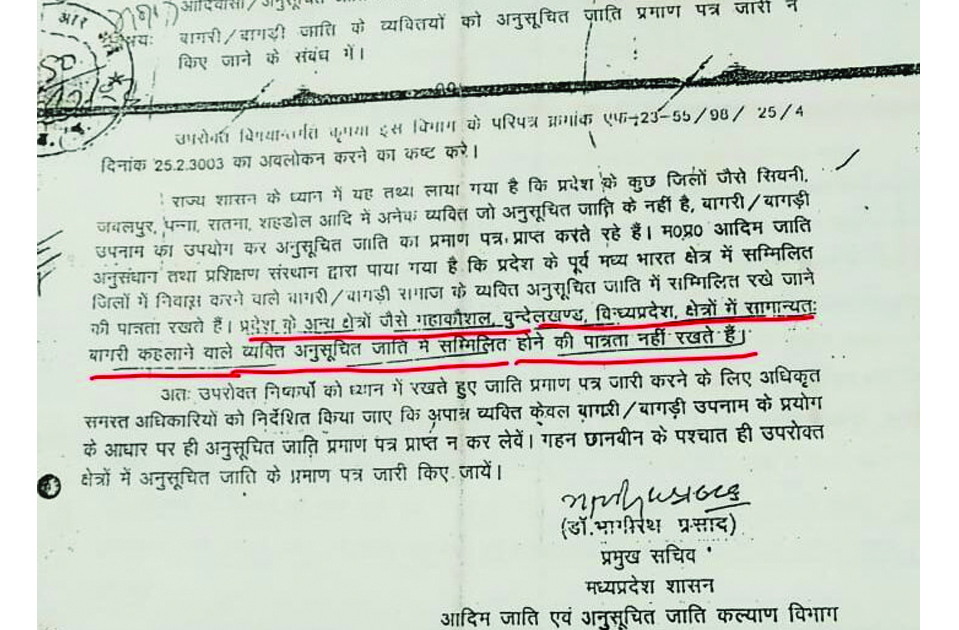 आदिवासी/अनुसूचित जाति
विषयः बागरी/बागड़ी जाति के व्यक्तियों को अनुसूचित जाति प्रमाण पत्र जारी न
किए जाने के संबंध में।
उपरोक्त विषयान्तर्गत कृपया इस विभाग के परिपत्र क्रमांक एफ-23-55/98/25/4
दिनांक 25.2.3003 का अवलोकन करने का कष्ट करे।
राज्य शासन के ध्यान में यह तथ्य लाया गया है कि प्रदेश के कुछ जिलों जैसे सिवनी,
जबलपुर, पन्ना, सतना, शहडोल आदि में अनेक व्यक्ति जो अनुसूचित जाति के नहीं है, बागरी/बागड़ी
उपनाम का उपयोग कर अनुसूचित जाति का प्रमाण पत्र प्राप्त करते रहे हैं। म0प्र0 आदिम जाति
अनुसंधान तथा प्रशिक्षण संस्थान द्वारा पाया गया है कि प्रदेश के पूर्व मध्य भारत क्षेत्र में सम्मिलित
जिलों में निवास करने वाले बागरी/बागड़ी समाज के व्यक्ति अनुसूचित जाति में सम्मिलित रखे जाने
की पात्रता रखते हैं। प्रदेश के अन्य क्षेत्रों जैसे महाकौशल, बुन्देलखण्ड, विन्ध्यप्रदेश, क्षेत्रों में सामान्यतः
बागरी कहलाने वाले व्यक्ति अनुसूचित जाति में सम्मिलित होने की पात्रता नहीं रखते हैं।
अतः उपरोक्त निष्कर्षो को ध्यान में रखते हुए जाति प्रमाण पत्र जारी करने के लिए अधिकृत
समस्त अधिकारियों को निर्देशित किया जाए कि अपात्र व्यक्ति केवल बागरी/बागड़ी उपनाम के प्रयोग
के आधार पर ही अनुसूचित जाति प्रमाण पत्र प्राप्त न कर लेवें। गहन छानबीन के पश्चात ही उपरोक्त
क्षेत्रों में अनुसूचित जाति के प्रमाण पत्र जारी किए जायें।
(डॉ.भागीरथ प्रसाद)
प्रमुख सचिव
मध्यप्रदेश शासन
आदिम जाति एवं अनुसूचित जाति कल्याण विभाग